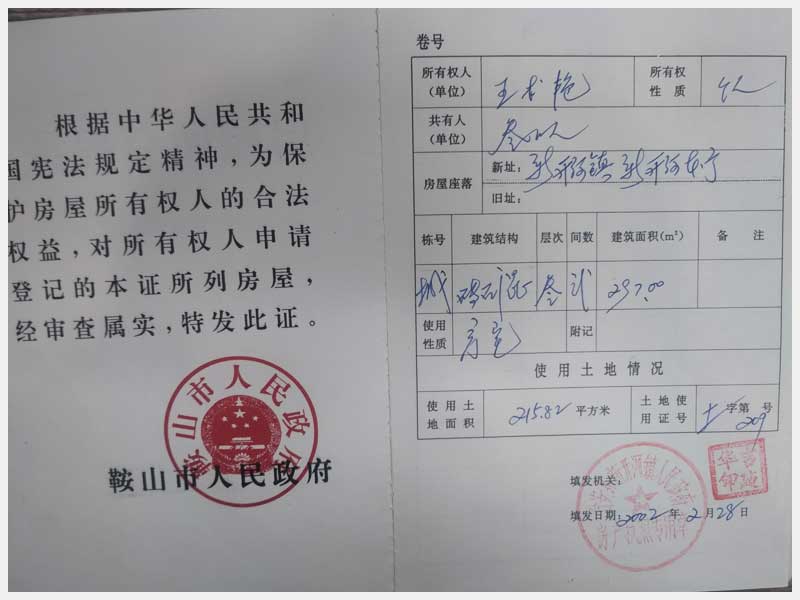 根据中华人民共和
国宪法规定精神，为保
护房屋所有权人的合法
权益，对所有权人申请
登记的本证所列房屋，
经审查属实，特发此证。
鞍山市人民政府
鞍山市人民政府
卷号
所有权人
(单位)
所有权
性质
共有人
(单位)
房屋座落
新址：新开河镇新开河
旧址：
栋号 建筑结构 层次 间数 建筑面积(m²) 备注
砖混 叁 贰 297.00
使用
性质
住宅
附记
使用土地情况
使用土
地面积
215.82 平方米
土地使
用证号
土字第209号
填发机关：
填发日期：2002年2月28日